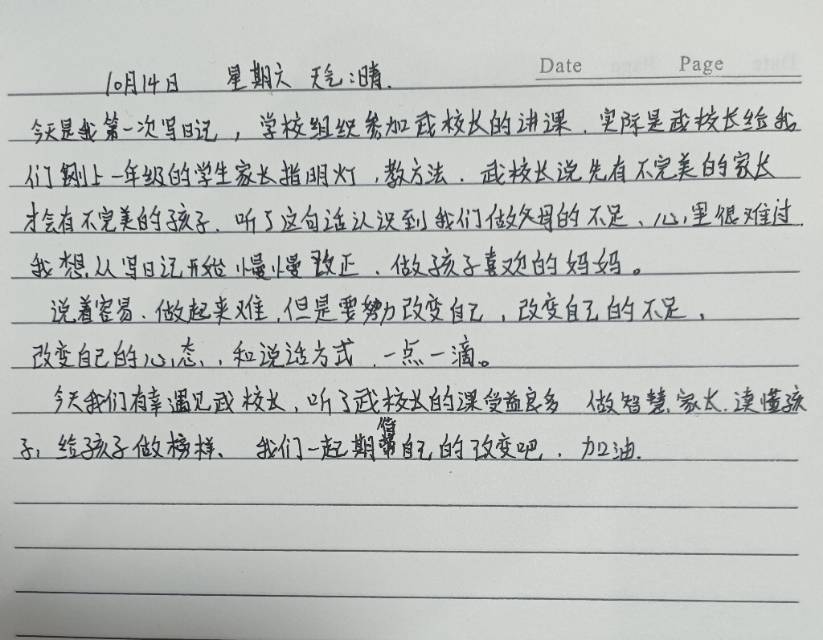 Date Page
10月14日 星期六 天气:晴.
今天是我第一次写日记，学校组织参加武校长的讲课.实际是武校长给我
们刚上一年级的学生家长指明灯,教方法.武校长说先有不完美的家长
才会有不完美的孩子.听了这句话认识到我们做父母的不足、心里很难过.
我想,从写日记开始慢慢改正、做孩子喜欢的妈妈。
说着容易、做起来难,但是要努力改变自己,改变自己的不足,
改变自己的心态,和说话方式.一点一滴。
今天我们有幸遇见武校长,听了武校长的课受益良多 做智慧家长.读懂孩
子,给孩子做榜样、我们一起期待自己的改变吧.加油.